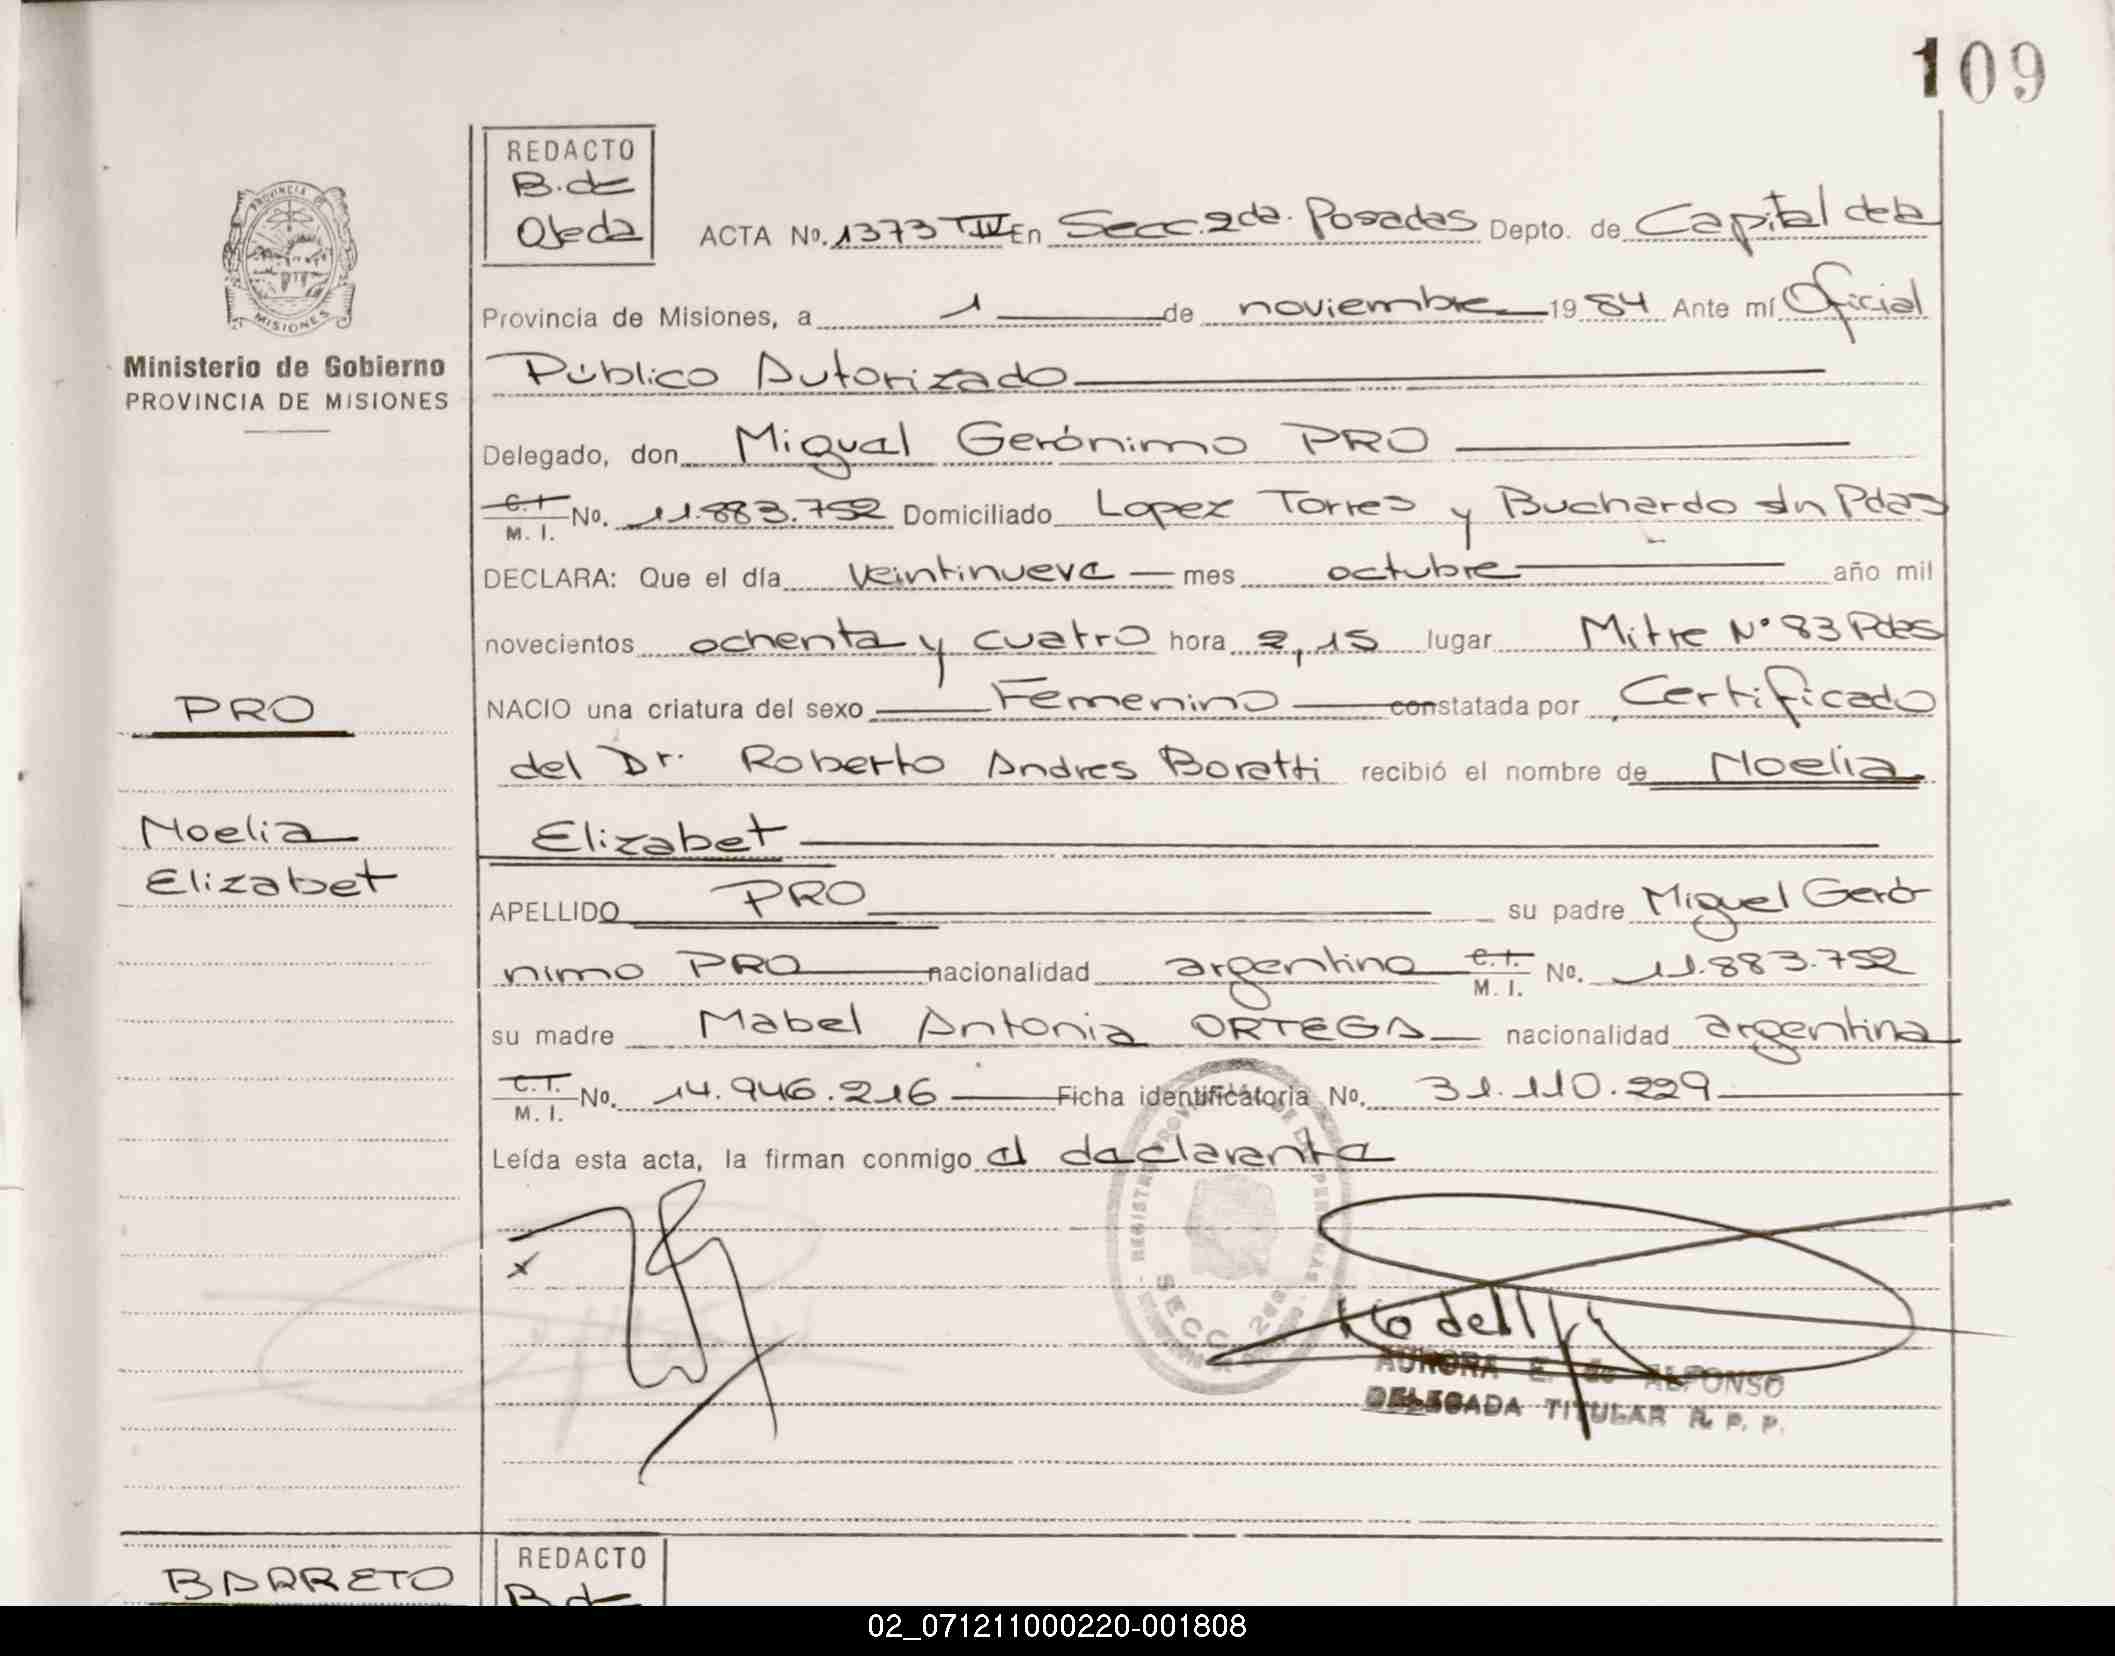 109
REDACTO
B. de
Ojeda
ACTA No. 1373 TIV En Secc. 2da. Posadas Depto. de Capital de la
Provincia de Misiones, a 1 de noviembre 1984 Ante mí Oficial
Público Autorizado
Delegado, don Miguel Gerónimo PRO
C.I. M. I. No. 11.883.752 Domiciliado Lopez Torres y Buchardo s/n Pdas
DECLARA: Que el día veintinueve mes octubre año mil
novecientos ochenta y cuatro hora 2,15 lugar Mitre Nº 83 Pdas
NACIO una criatura del sexo Femenino constatada por Certificado
del Dr. Roberto Andres Boratti recibió el nombre de Noelia
Elizabet
APELLIDO PRO su padre Miguel Geró
nimo PRO nacionalidad argentino C.I. M. I. No. 11.883.752
su madre Mabel Antonia ORTEGA nacionalidad argentina
C.I. M. I. No. 14.946.216 Ficha identificatoria No. 31.110.229
Leída esta acta, la firman conmigo el declarante
x
AURORA E. de ALFONSO
DELEGADA TITULAR R. P. P.
SECC 2da
PROVINCIA DE
MISIONES
Ministerio de Gobierno
PROVINCIA DE MISIONES
PRO
Noelia
Elizabet
BARRETO
REDACTO
B. de
02_071211000220-001808